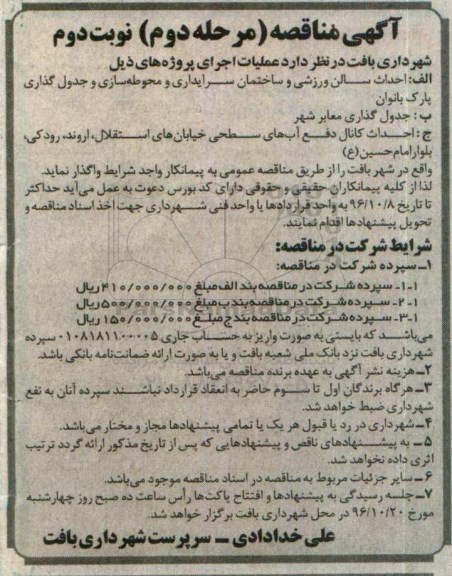 آگهی مناقصه (مرحله دوم) نوبت دوم
شهرداری بافت در نظر دارد عملیات اجرای پروژه های ذیل
الف: احداث سالن ورزشی و ساختمان سرایداری و محوطه سازی و جدول گذاری
پارک بانوان
ب: جدول گذاری معابر شهر
ج: احداث کانال دفع آب های سطحی خیابان های استقلال، اروند، رودکی،
بلوار امام حسین (ع)
واقع در شهر بافت را از طریق مناقصه عمومی به پیمانکار واجد شرایط واگذار نماید.
لذا از کلیه پیمانکاران حقیقی و حقوقی دارای کد بورس دعوت به عمل می آید حداکثر
تا تاریخ ۹۶/۱۰/۸ به واحد قراردادها یا واحد فنی شهرداری جهت اخذ اسناد مناقصه و
تحویل پیشنهادها اقدام نمایند.
شرایط شرکت در مناقصه:
۱ـ سپرده شرکت در مناقصه:
۱-۱- سپرده شرکت در مناقصه بند الف مبلغ ۴۱۰/۰۰۰/۰۰۰ ریال
۲-۱- سپرده شرکت در مناقصه بند ب مبلغ ۵۰۰/۰۰۰/۰۰۰ ریال
۳-۱- سپرده شرکت در مناقصه بند ج مبلغ ۱۵۰/۰۰۰/۰۰۰ ریال
می باشد که بایستی به صورت واریز به حساب جاری سپرده
شهرداری بافت نزد بانک ملی شعبه بافت و یا به صورت ارائه ضمانت نامه بانکی باشد.
۲ـ هزینه نشر آگهی به عهده برنده مناقصه می باشد.
۳ـ هرگاه برندگان اول تا سوم حاضر به انعقاد قرارداد نباشند سپرده آنان به نفع
شهرداری ضبط خواهد شد.
۴ـ شهرداری در رد یا قبول هر یک یا تمامی پیشنهادها مجاز و مختار می باشد.
۵ـ به پیشنهادهای ناقص و پیشنهادهایی که پس از تاریخ مذکور ارائه گردد ترتیب
اثری داده نخواهد شد.
۶ـ سایر جزئیات مربوط به مناقصه در اسناد مناقصه موجود می باشد.
۷ـ جلسه رسیدگی به پیشنهادها و افتتاح پاکت ها رأس ساعت ده صبح روز چهارشنبه
مورخ ۹۶/۱۰/۲۰ در محل شهرداری بافت برگزار خواهد شد.
علی خدادادی ـ سرپرست شهرداری بافت